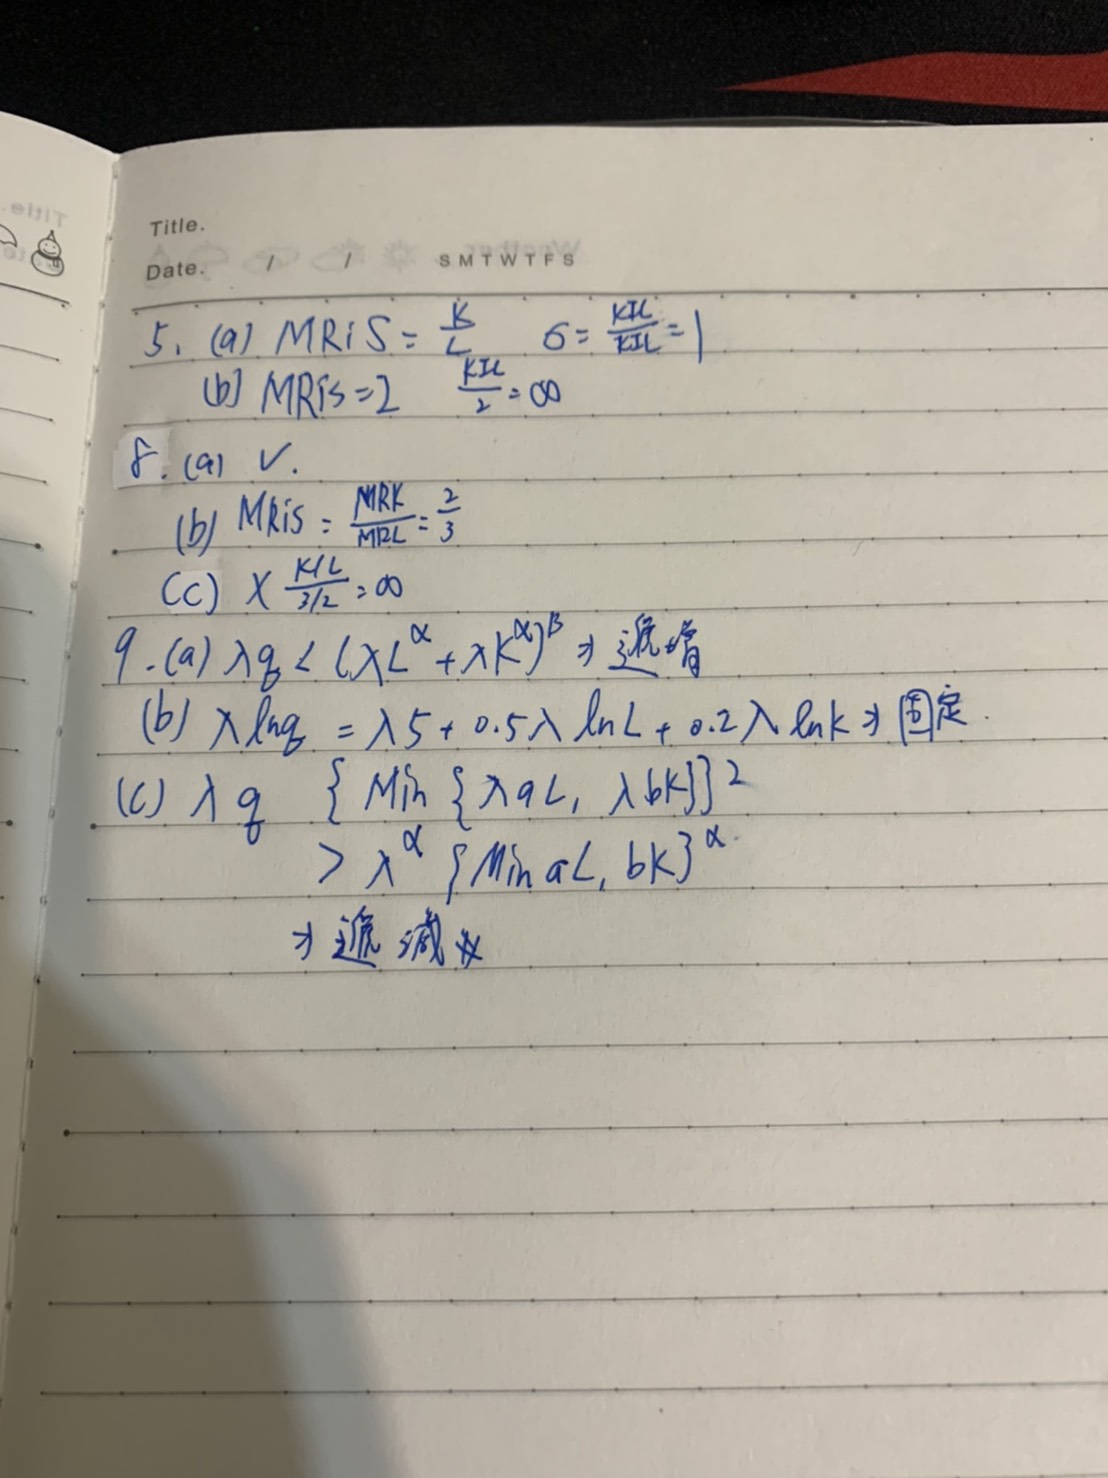 Title.
Date. / / S M T W T F S
5. (a) MRiS = K/L σ = K/L / K/L = 1
(b) MRiS = 2 K/L / 2 = ∞
8. (a) ✓.
(b) MRiS = MRK / MRL = 2/3
(c) X K/L / 3/2 = ∞
9. (a) λq < (λL^α + λK^α)^β ⇒ 遞增
(b) λ lnq = λ5 + 0.5λ lnL + 0.2λ lnK ⇒ 固定.
(c) λq { Min {λaL, λbK}}^2
> λ^α {Min aL, bK}^α.
⇒ 遞減